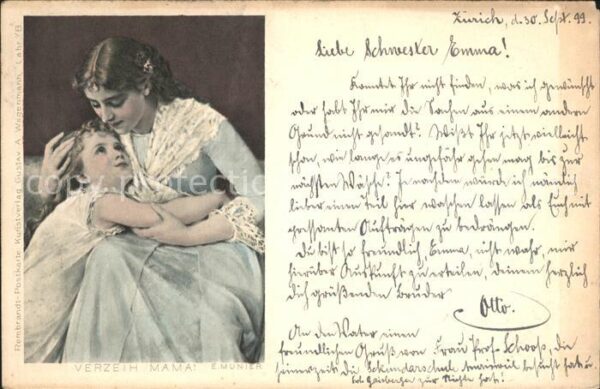 Zürich, d. 30. Sept. 99.
Liebe Schwester Emma!
Konntet Ihr nicht finden, was ich gewünscht
oder habt Ihr mir die Sachen aus einem andern
Grund nicht gesandt? Wißt Ihr jetzt vielleicht
schon, wie lange es ungefähr gehen mag bis zur
nächsten Wäsche? Je nachdem würde ich nämlich
lieber einen Teil hier waschen lassen als Euch mit
Aufträgen zu bedrängen.
Du bist so freundlich, Emma, nicht wahr, mir
hierüber Auskunft zu erteilen, deinem herzlich
dich grüßenden Bruder
Otto.
An den Vater einen
freundlichen Gruß von Frau Prof. Schoop, die
seinerzeit die Sekundarschule besucht hat u.
zur Nichte hat.
VERZEIH MAMA!
E. MUNIER
Rembrandt-Postkarte Kunstverlag Gustav A. Wagenmann, Lahr i/B
copyright protection